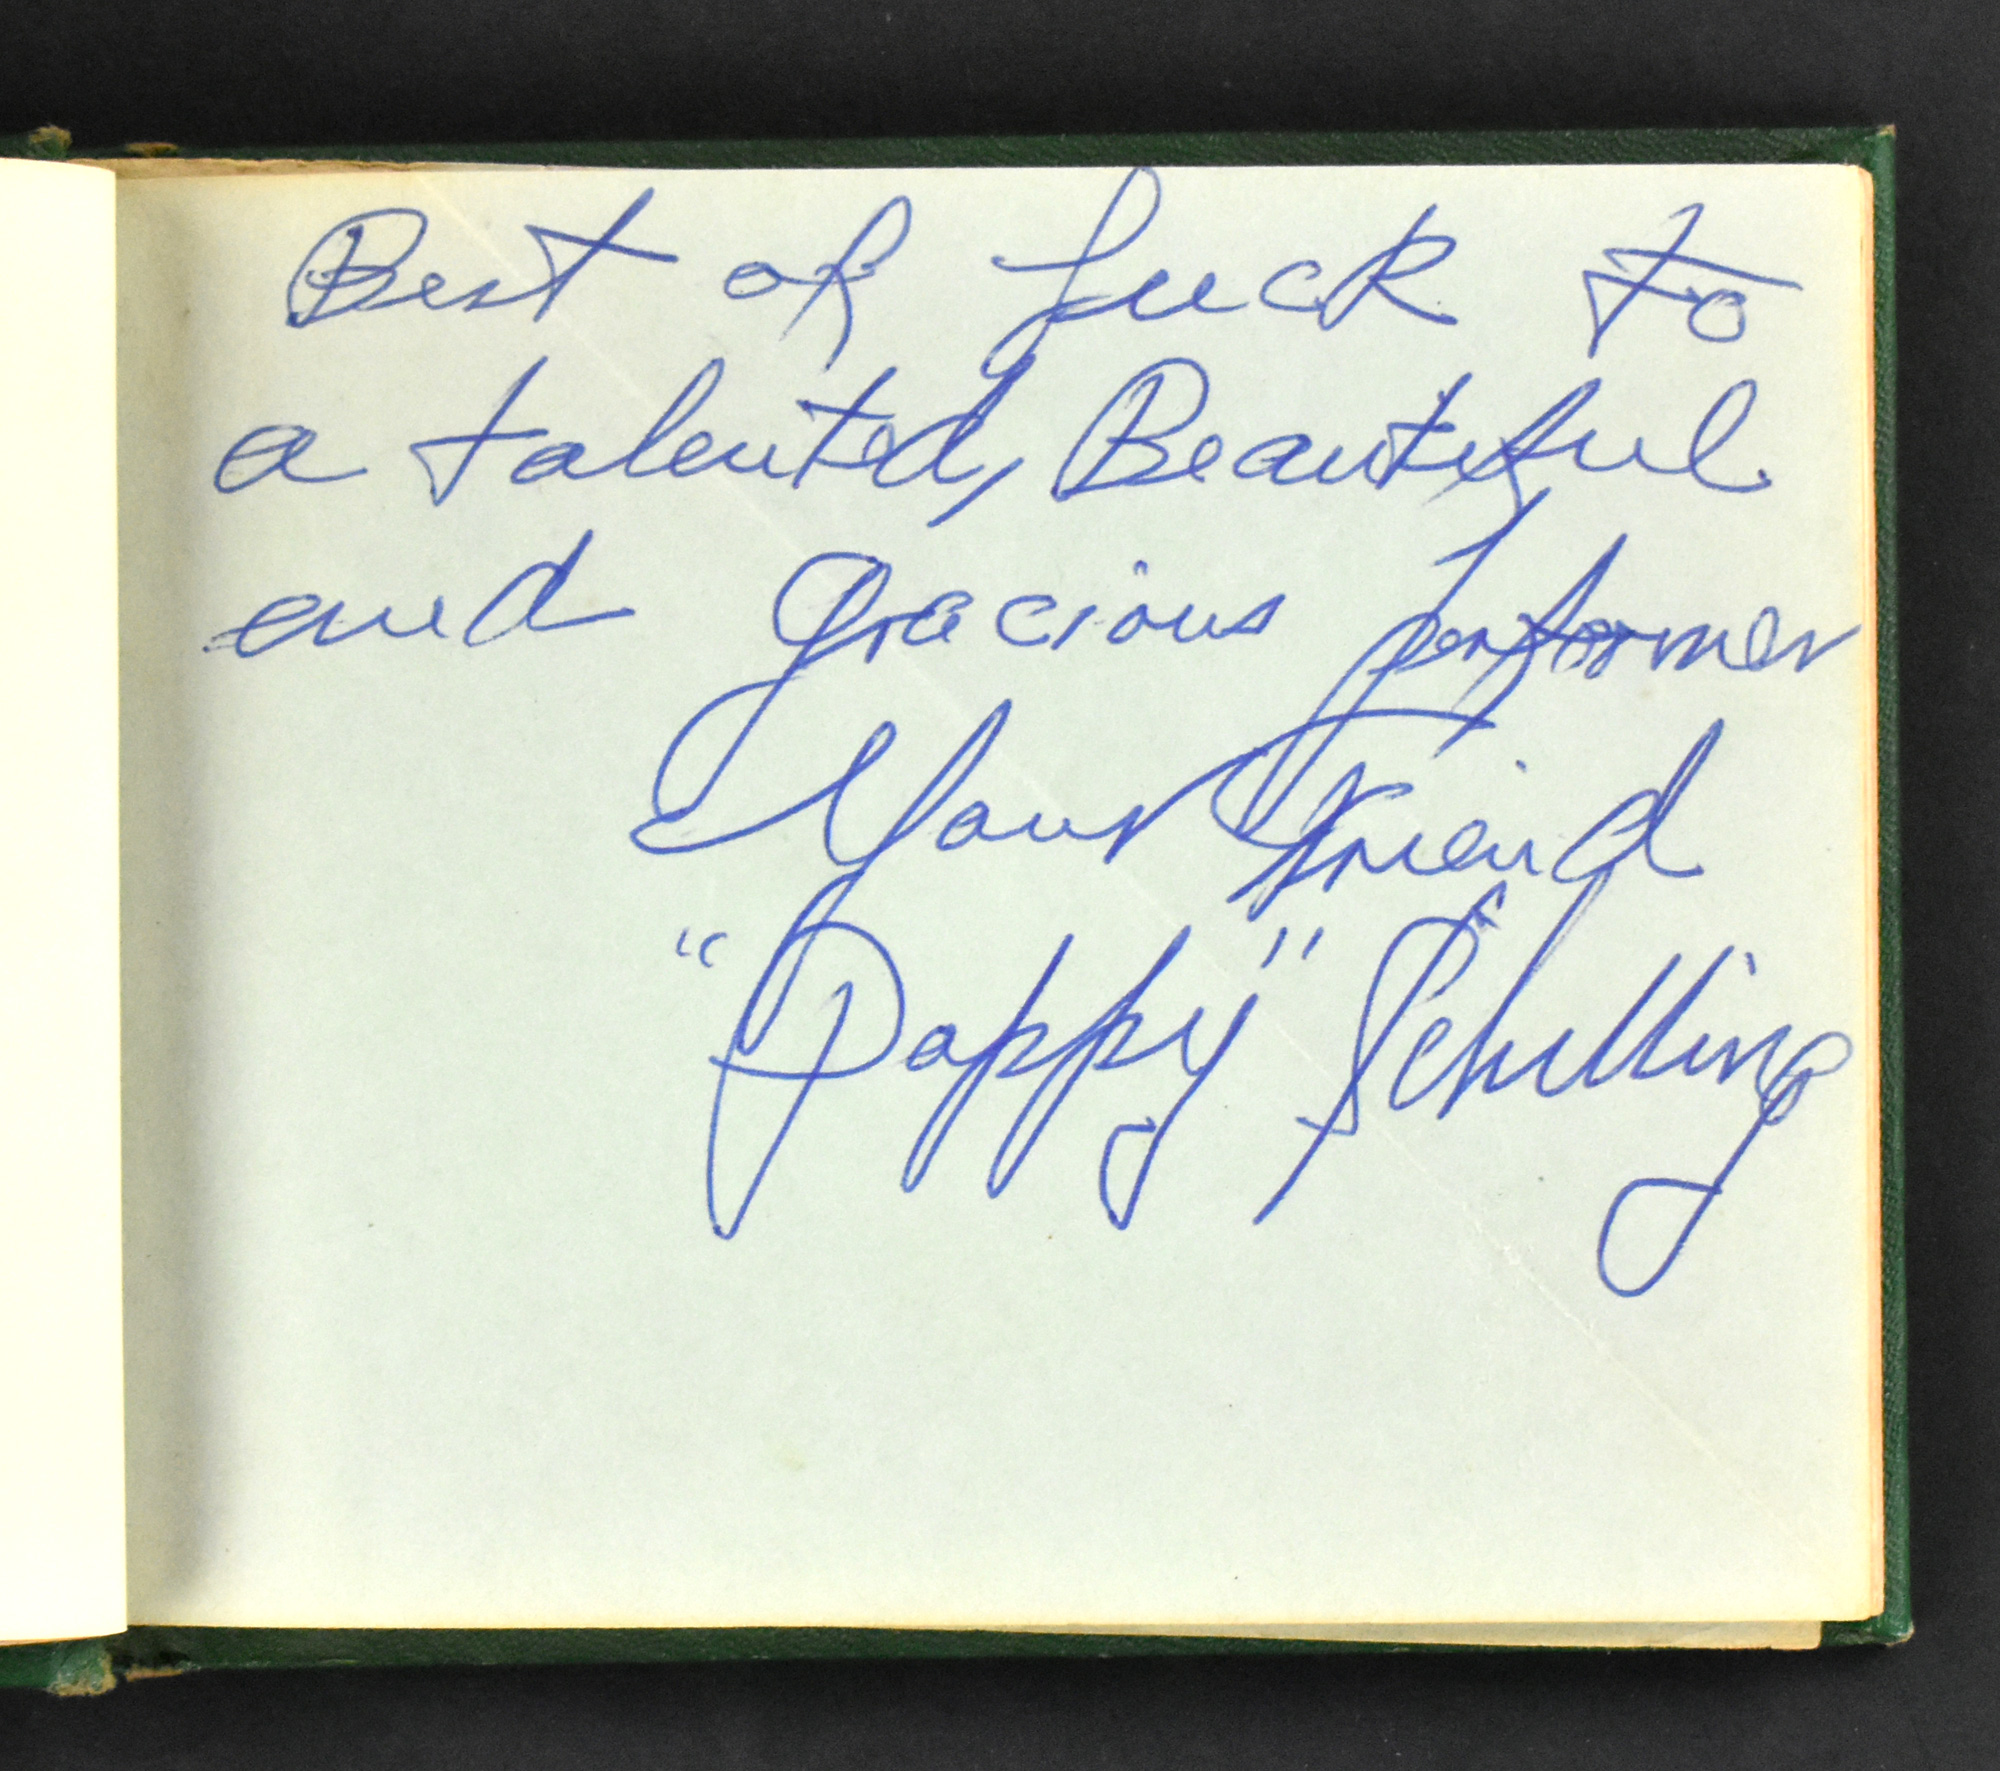 Best of luck to
a talented, Beautiful
and Gracious performer
Your Friend
"Pappy" Schilling